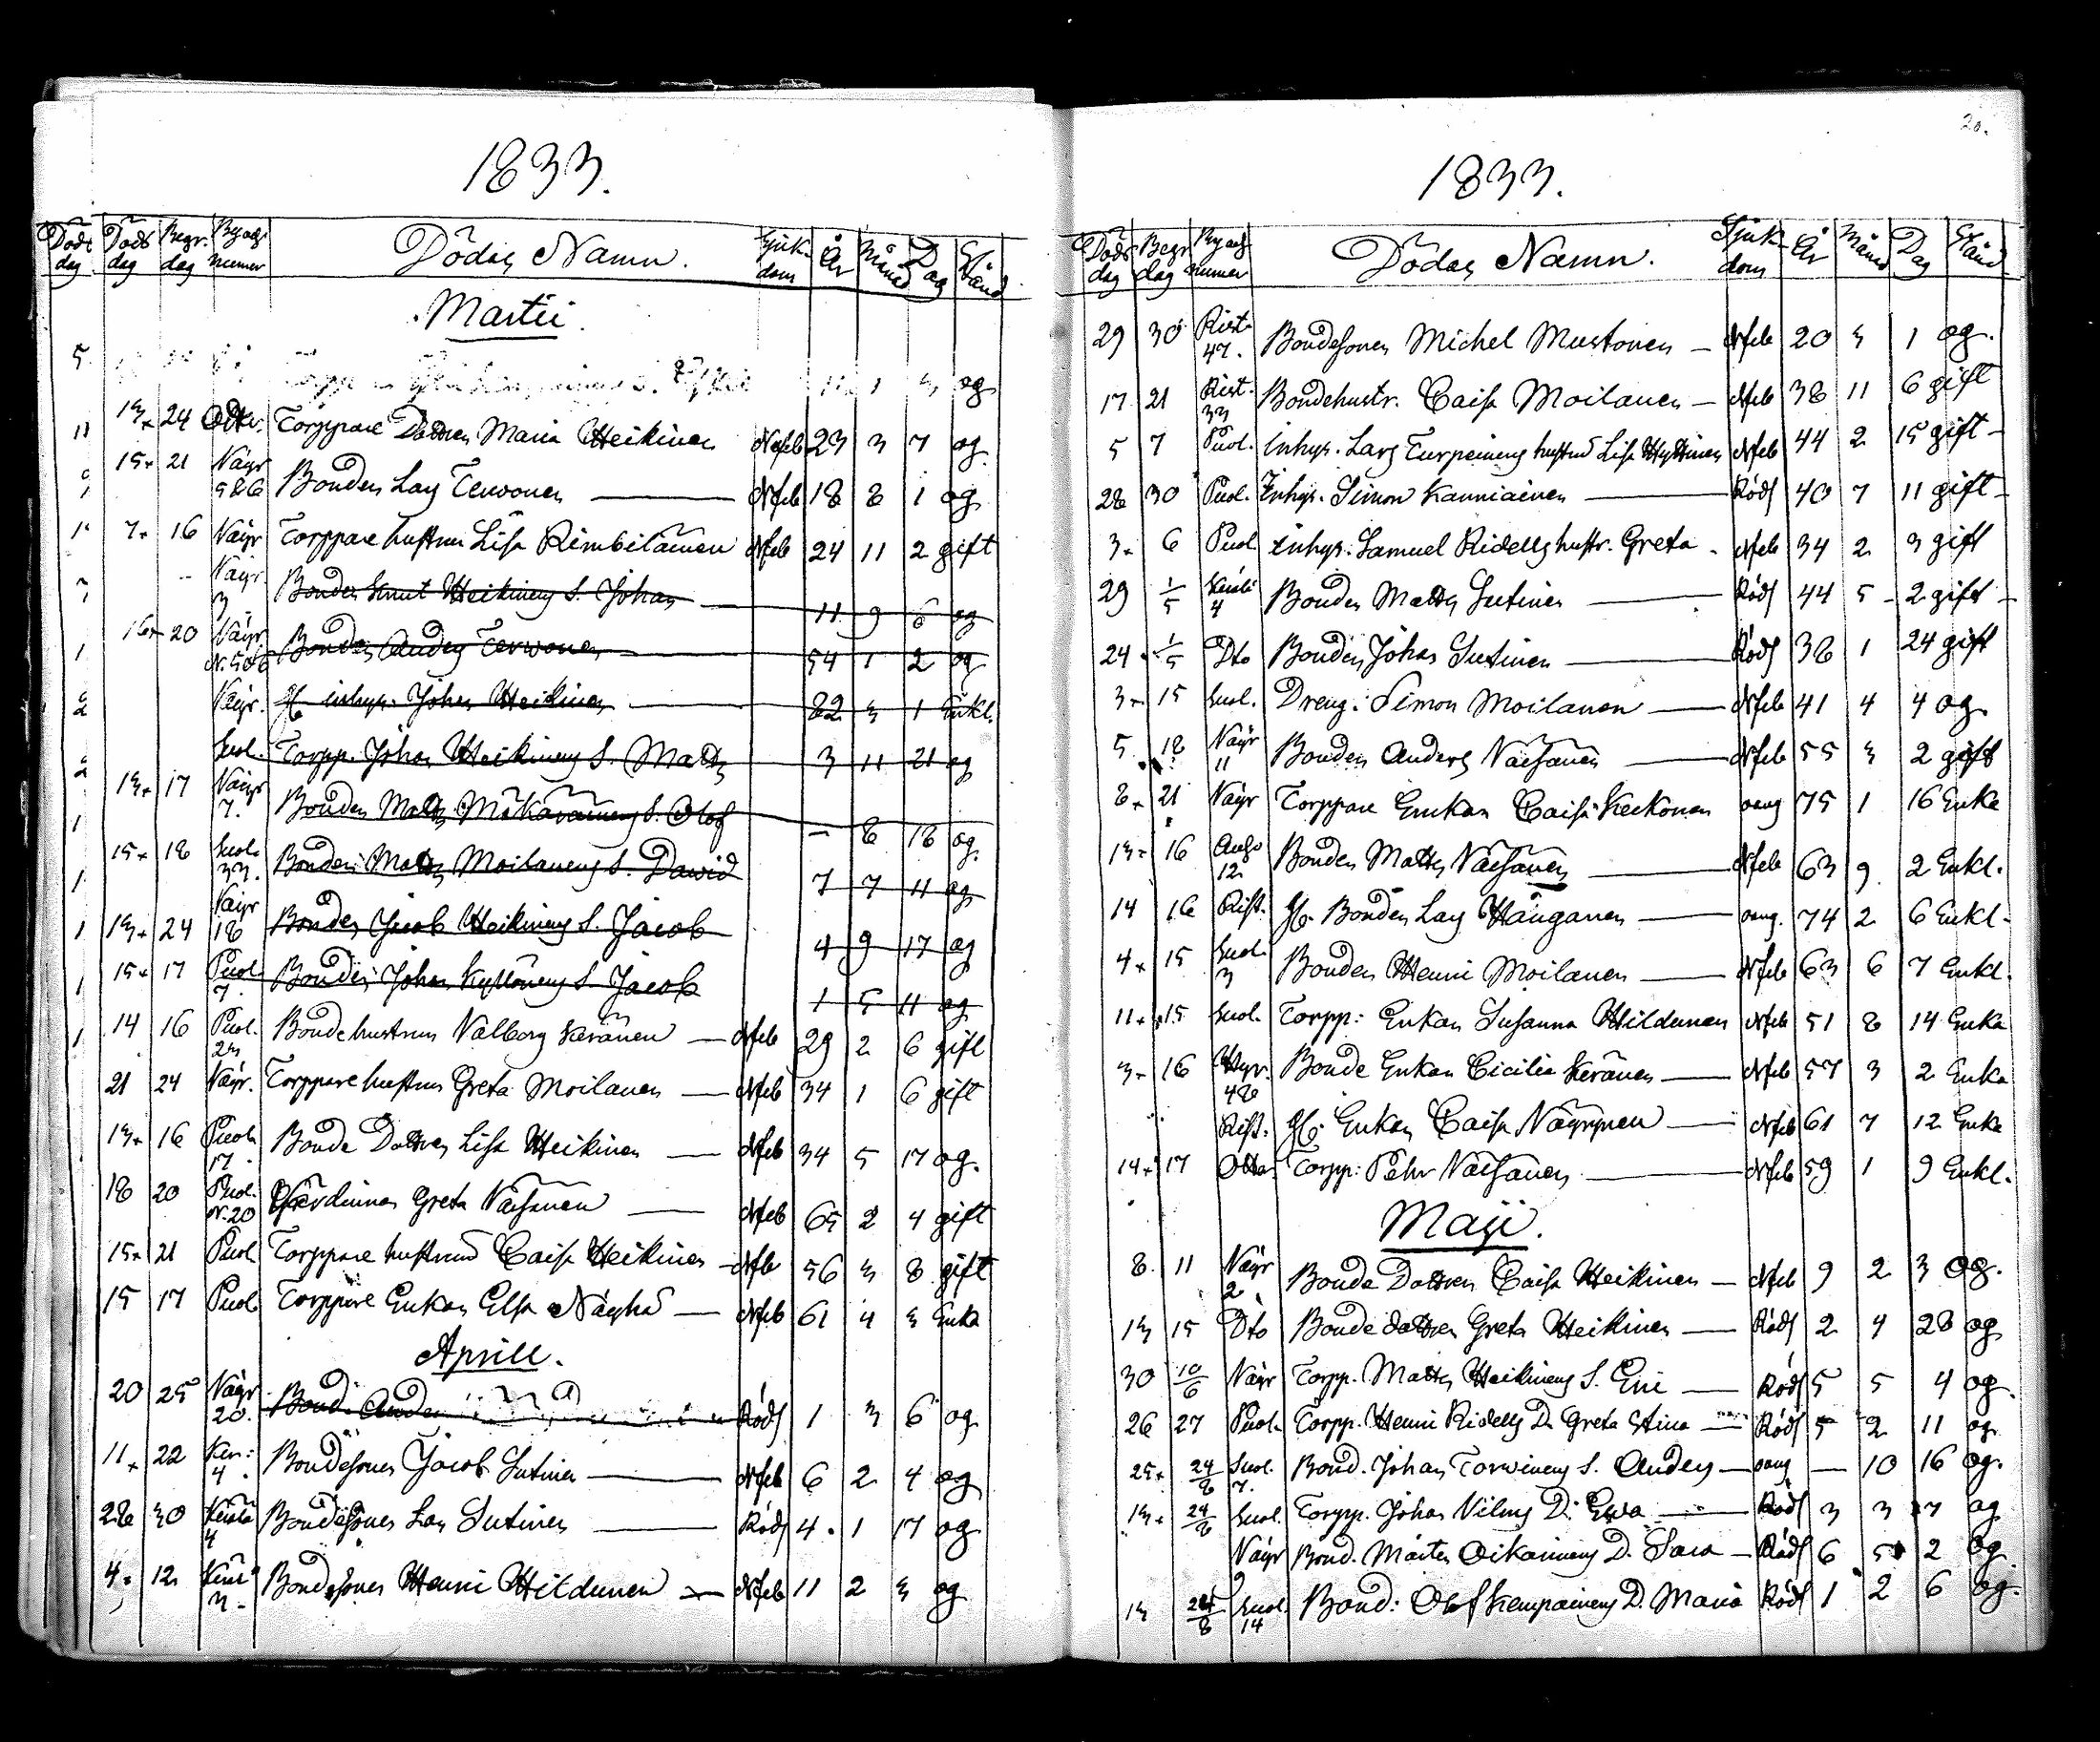 1833.
Döds dag Döds dag Begr. dag Byarnes numer Dödas Namn. Sjuk- dom År Månad Dag Stånd
Martii.
5. og
13+ 24 Torppare Dottren Maria Heikinen Nfeb 23 3 7 og
15+ 21 Näyr 5&6 Bonden Lars Tervonen Nfeb 18 8 1 og
7+ 16 Näyr Torppare hustrun Lisa Nfeb 24 11 2 gift
Näyr. 3 Bonden Knut Heikinens S. Johan 11 9 6 og
16+ 20 Näyr N. 5&6 Bonden Anders Tervonen 54 1 2 og
Näyr. inhys. Johan Heikinen 82 3 1 Enkl.
Suol. Torpp. Johan Heikinens S. Matts 3 11 21 og
13+ 17 Näyr 7. Bonden Matts S. Olof – 8 18 og.
15+ 18 Suol. 33. Bonden Matts Moilanens S. David 7 7 11 og
13+ 24 Näyr 18 Bonden Jacob Heikinens S. Jacob 4 9 17 og
15+ 17 Puol 7. Bonden Johan Kyllönens S. Jacob 1 5 11 og
14 16 Puol. 23 Bondehustrun Valborg Keränen Nfeb 29 2 6 gift
21 24 Näyr. Torppare hustrun Greta Moilanen Nfeb 34 1 6 gift
13+ 16 Puol. 17. Bonde Dottren Lisa Heikinen Nfeb 34 5 17 og.
18 20 Puol. N. 20 Värdinnan Greta Väisänen Nfeb 65 2 4 gift
15+ 21 Puol Torppare hustrun Caisa Heikinen Nfeb 56 3 8 gift
15 17 Puol Torppare Enkan Elsa Nfeb 61 4 3 Enka
Aprill.
20 25 Näyr 20. Bond. Anders Röds 1 3 6 og
11+ 22 Ker: 4. Bondesonen Jacob Sutinen Nfeb 6 2 4 og
28 30 4 Bondesonen Lars Sutinen Röds 4 1 17 og
4+ 12 Bondesonen Henric Hildunen Nfeb 11 2 3 og
20.
1833.
Döds dag Begr dag Byarnes numer Dödas Namn. Sjuk- dom År Månad Dag Stånd
29 30 Rist. 47. Bondesonen Michel Mustonen Nfeb 20 3 1 og.
17 21 Rist. 33 Bondehustr. Caisa Moilanen Nfeb 38 11 6 gift
5 7 Puol. Inhys. Lars Turpeinens hustru Lisa Hyttinen Nfeb 44 2 15 gift
28 30 Puol. Inhys. Simon Kauniainen Röds 40 7 11 gift
3+ 6 Puol inhys. Samuel Ridells hustr. Greta Nfeb 34 2 3 gift
29 1/5 4 Bonden Matts Sutinen Röds 44 5 2 gift
24 1/5 Dto Bonden Johan Sutinen Röds 38 1 24 gift
3+ 15 Suol. Dreng: Simon Moilanen Nfeb 41 4 4 og.
5 18 Näyr 11 Bonden Anders Väisänen Nfeb 55 3 2 gift
8+ 21 Näyr Torppare Enkan Caisa Keikonen 75 1 16 Enka
13+ 16 12 Bonden Matts Väisänen Nfeb 63 9 2 Enkl.
14 16 Rist. Bonden Lars Hänganen 74 2 6 Enkl.
4+ 15 Suol 3 Bonden Henric Moilanen Nfeb 63 6 7 Enkl.
11+ 15 Suol. Torpp: Enkan Susanna Hildunen Nfeb 51 8 14 Enka
3+ 16 Hyr. 48 Bonde Enkan Cicilia Keränen Nfeb 57 3 2 Enka
Rist. Enkan Caisa Näyrynen Nfeb 61 7 12 Enka
14+ 17 Torpp: Pehr Väisänen Nfeb 59 1 9 Enkl.
Maji.
8. 11 Näyr 2. Bonde Dottren Caisa Heikinen Nfeb 9 2 3 og.
13 15 Dto Bonde dottren Greta Heikinen Röds 2 4 28 og
30 10/6 Näyr Torpp. Matts Heikinens S. Eric Röds 5 5 4 og.
26 27 Puol. Torpp. Henric Ridells D. Greta Stina Röds 5 2 11 og
25+ 24/8 Suol. 7. Bond. Johan Torvinens S. Anders – 10 16 og.
13+ 24/8 Suol. Torpp. Johan D. Eva Röds 3 3 7 og
Näyr 9 Bond. Mårten Oikarinens D. Sara Röds 6 5 2 og.
13 24/8 Suol 14 Bond: Olof Kempainens D. Maria Röds 1 2 6 og.